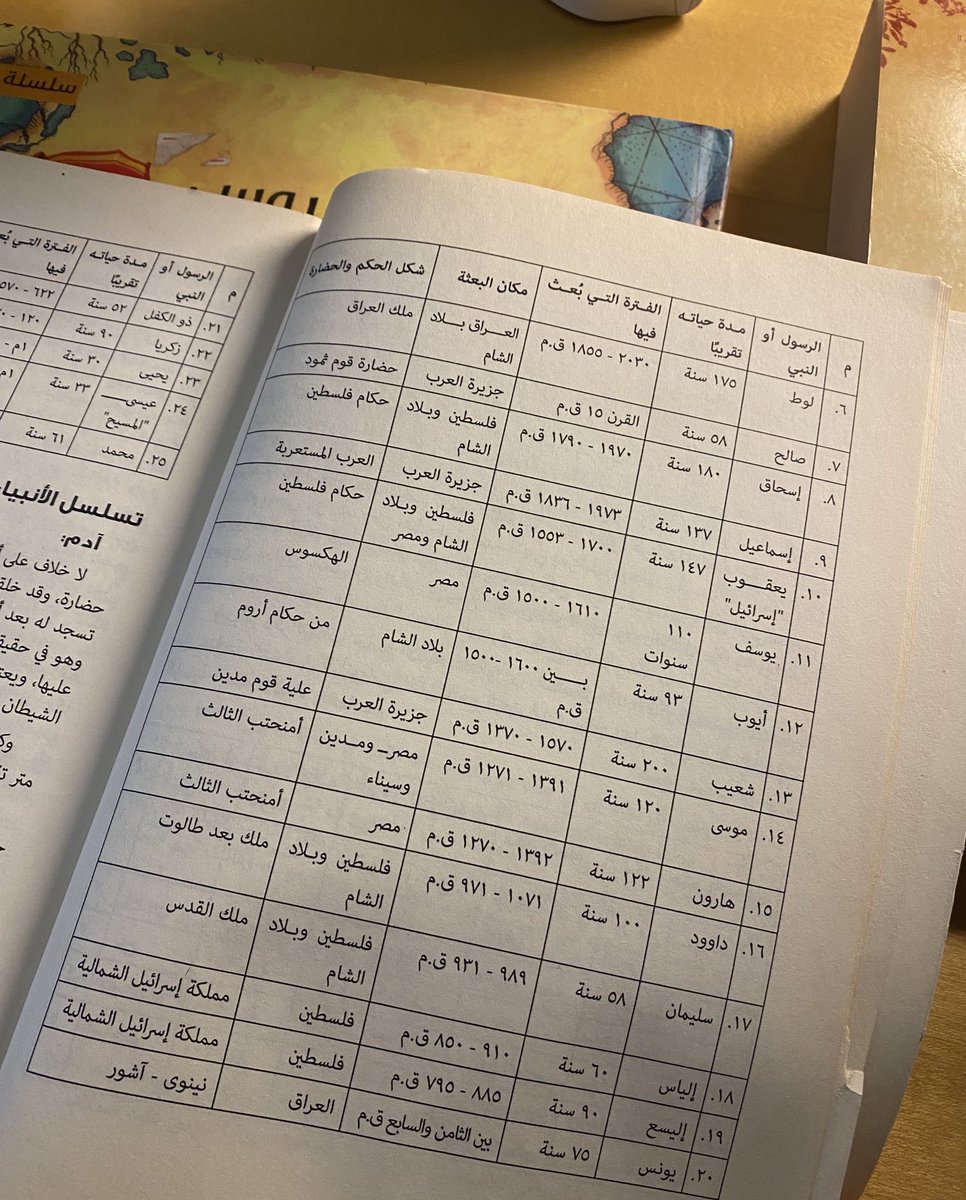 سلسلة
م | الرسول أو النبي | مدة حياته تقريبًا | الفترة التي بُعث فيها | مكان البعثة | شكل الحكم والحضارة
٦. | لوط | ١٧٥ سنة | ٢٠٣٠ - ١٨٥٥ ق.م | العراق بلاد الشام | ملك العراق
٧. | صالح | ٥٨ سنة | القرن ١٥ ق.م | جزيرة العرب | حضارة قوم ثمود
٨. | إسحاق | ١٨٠ سنة | ١٩٧٠ - ١٧٩٠ ق.م | فلسطين وبلاد الشام | حكام فلسطين
٩. | إسماعيل | ١٣٧ سنة | ١٩٧٣ - ١٨٣٦ ق.م | جزيرة العرب | العرب المستعربة
١٠. | يعقوب "إسرائيل" | ١٤٧ سنة | ١٧٠٠ - ١٥٥٣ ق.م | فلسطين وبلاد الشام ومصر | حكام فلسطين
١١. | يوسف | ١١٠ سنوات | ١٦١٠ - ١٥٠٠ ق.م | مصر | الهكسوس
١٢. | أيوب | ٩٣ سنة | بين ١٦٠٠ -١٥٠٠ ق.م | بلاد الشام | من حكام أروم
١٣. | شعيب | ٢٠٠ سنة | ١٥٧٠ - ١٣٧٠ ق.م | جزيرة العرب | علية قوم مدين
١٤. | موسى | ١٢٠ سنة | ١٣٩١ - ١٢٧١ ق.م | مصر- ومدين وسيناء | أمنحتب الثالث
١٥. | هارون | ١٢٢ سنة | ١٣٩٢ - ١٢٧٠ ق.م | مصر | أمنحتب الثالث
١٦. | داوود | ١٠٠ سنة | ١٠٧١ - ٩٧١ ق.م | فلسطين وبلاد الشام | ملك بعد طالوت
١٧. | سليمان | ٥٨ سنة | ٩٨٩ - ٩٣١ ق.م | فلسطين وبلاد الشام | ملك القدس
١٨. | إلياس | ٦٠ سنة | ٩١٠ - ٨٥٠ ق.م | فلسطين | مملكة إسرائيل الشمالية
١٩. | إليسع | ٩٠ سنة | ٨٨٥ - ٧٩٥ ق.م | فلسطين | مملكة إسرائيل الشمالية
٢٠. | يونس | ٧٥ سنة | بين الثامن والسابع ق.م | العراق | نينوى - آشور
م | الرسول أو النبي | مدة حياته تقريبًا | الفترة التي فيها
٢١. | ذو الكفل | ٥٢ سنة | ٦٢٢ - ٥٧٠
٢٢. | زكريا | ٩٠ سنة | ١٢٠ -
٢٣. | يحيى | ٣٠ سنة | ١م -
٢٤. | عيسى "المسيح" | ٣٣ سنة | ١م
٢٥. | محمد | ٦١ سنة
تسلسل الأنبياء
آدم:
لا خلاف على
حضارة، وقد
تسجد له بعد
وهو في
عليها،
الشيطان
متر